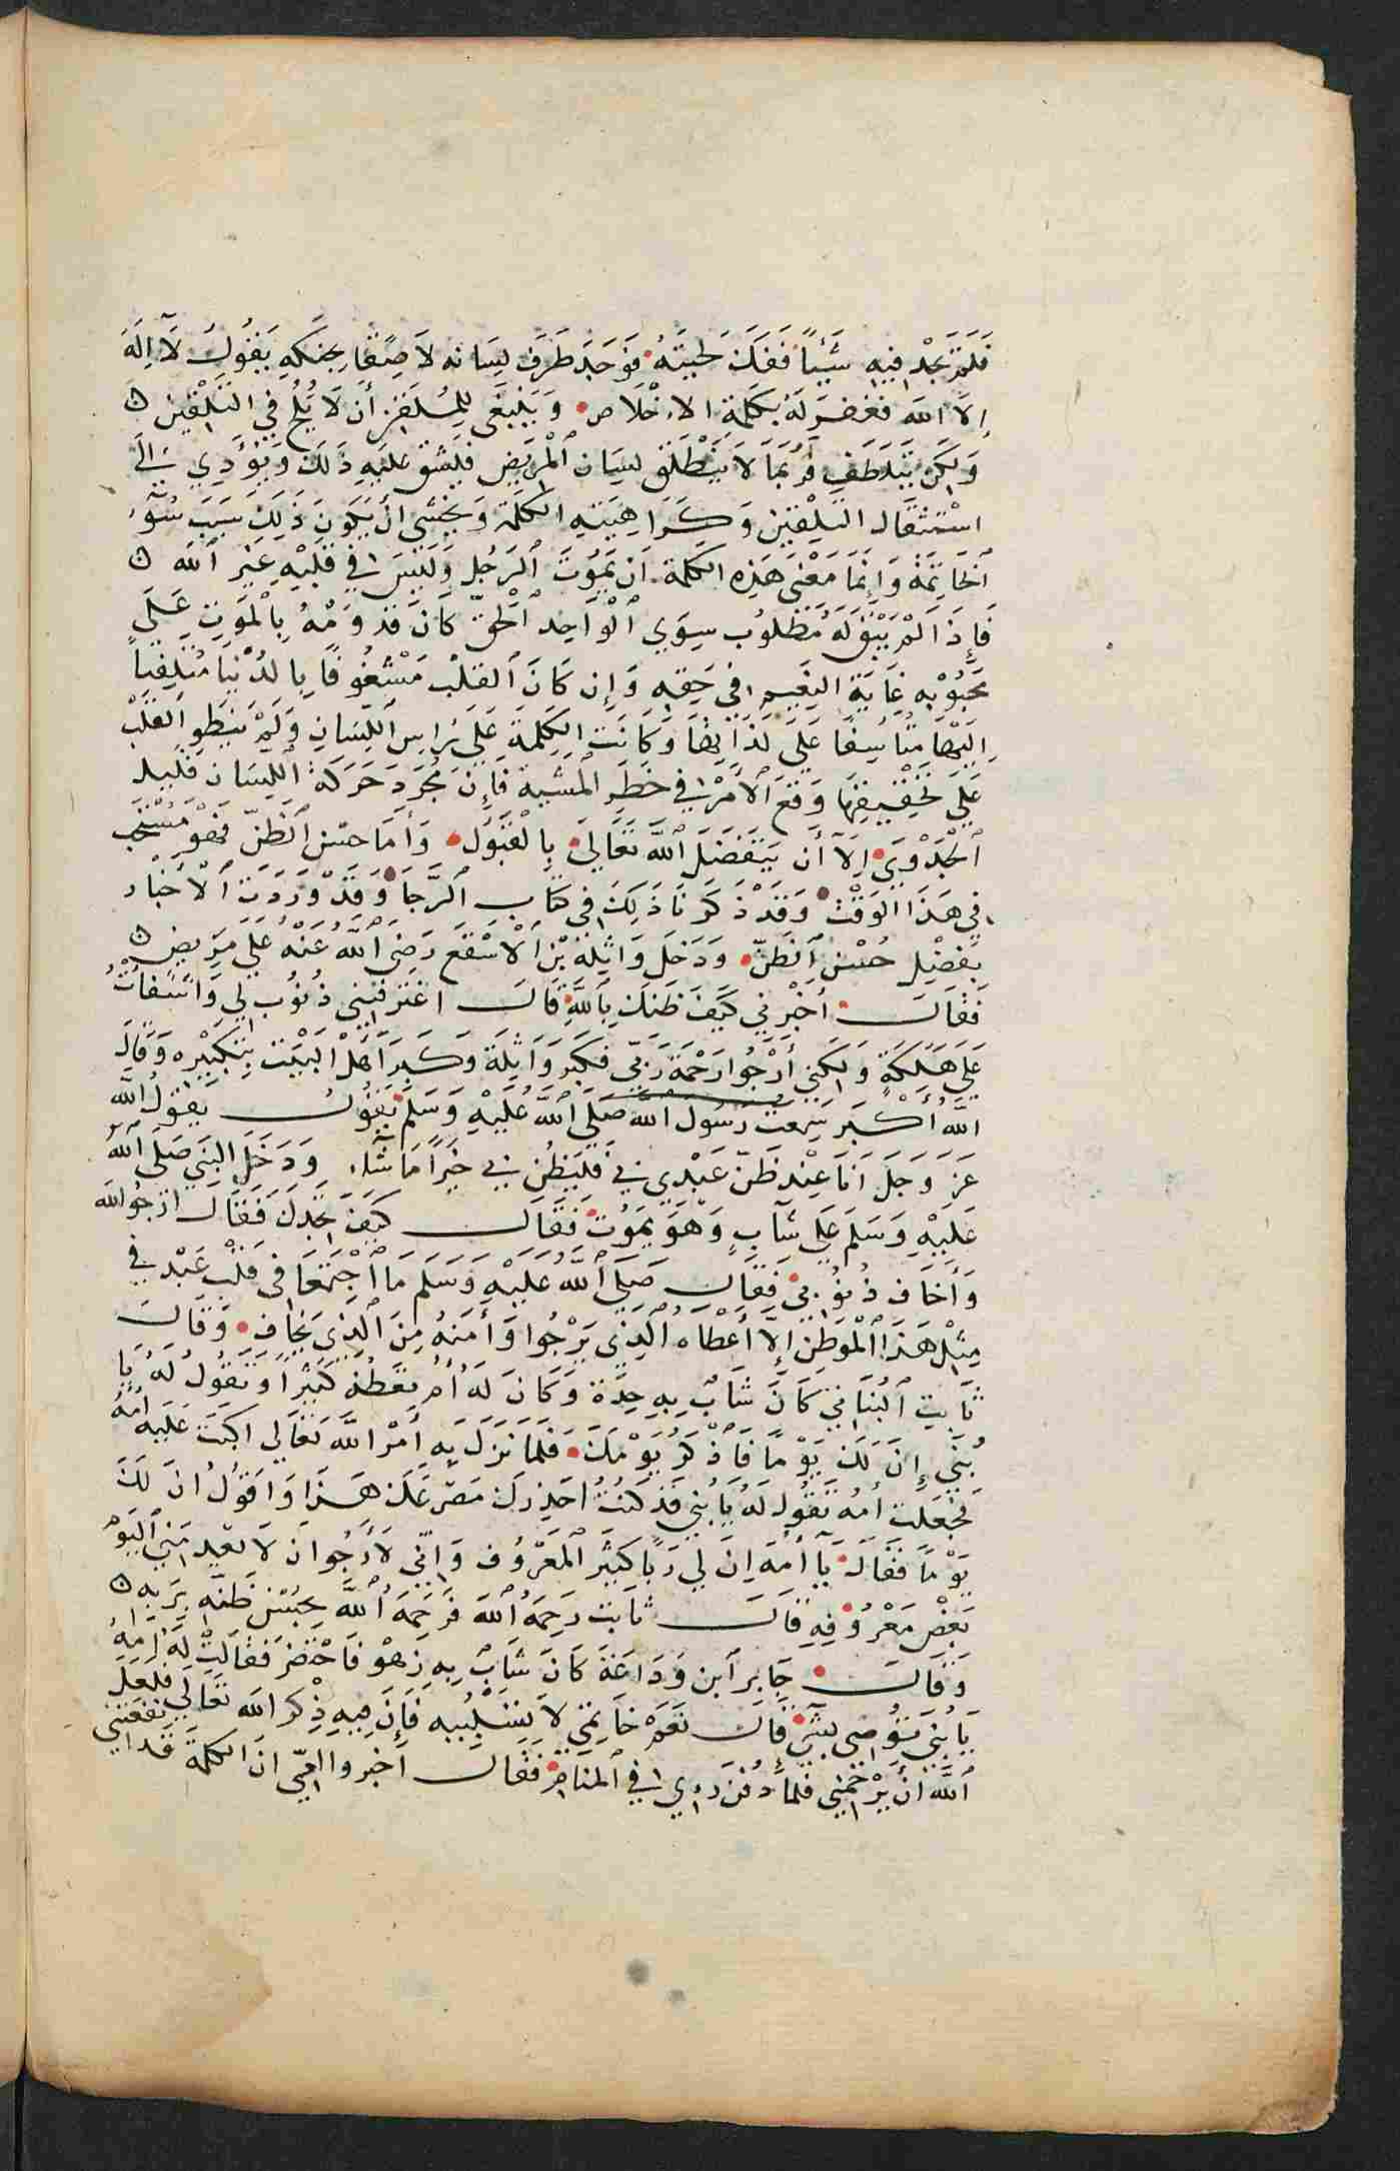 فَلَمْ يَجِدْ فِيهِ شَيْئًا فَفَكَّ لِحْيَتَهُ فَوَجَدَ طَرَفَ لِسَانه لَاصِقًا بِحَنَكِهِ يَقُولُ لَا إِلَهَ
إِلَّا الله فَغُفِرَ لَهُ بِكَلِمَةِ الاخْلَاص وَيَنْبَغِي لِلْمُلَقِّنِ أَن لَا يُلِحَّ فِي التَلْقِين ه
وَلَكِن يَتَلَطَّف فَرُبَّمَا لَا يَنْطَلِق لِسَان الْمَرِيضِ فَيَشُق عَلَيهِ ذَلِكَ وَيُؤَدِي الَى
اسْتِثْقَال التَلْقِيْن وَكَرَاهِيَتِهِ الكَلِمَة وَيخشَى ان يَكُونَ ذَلِكَ سَبَب سُوء
الْخَاتِمَة وَإِنَّمَا مَعْنَى هَذِهِ الكَلِمَة ان يَمُوتَ الرَجُل وَلَيْسَ فِي قَلْبِهِ غَيْر الله ه
فَإِذَا لَمْ يَبْقَ لَهُ مَطْلُوب سِوَي الْوَاحِد الْحَقّ كَانَ قدُومُهُ بِالْمَوْتِ عَلَى
مَحْبُوْبِهِ غَايَة النَعِيم فِي حَقِهِ وَإِن كَانَ الْقَلْب مَشْغُوفًا بِالدُنْيَا مُتلفِتاً
إِلَيْهَا مَتَأَسِفًا عَلَى لَذَاتِهَا وَكَانَت الكَلِمَة عَلَى رَاس اللِّسَانِ وَلَمْ يَنطَوِ القَلْب
عَلَى تَحْقِيقِهَا وَقَعَ الْأَمْر فِي خَطَرِ الْمَشِيَة فَإِنَ مُجَرَدَ حَرَكَة اللِسَان قَلِيل
الْجَدْوَي إِلَا أَن يَتَفَضَلَ اللَّه تَعَالَى بِالْقَبُول وَأَمَا حسْن الظَنّ فَهوَ مسْتحَب
فِي هَذَا الوَقْت وَقَدْ ذَكَرنَا ذَلِكَ فِي كتَاب الرَّجَا وَقَدْ وَرَدَت الْأَخْبَار
بِفَضْلِ حُسْن الظَنّ وَدَخَلَ وَاثِلَة بْن الْأَسْقَع رَضِيَ اللَّهُ عَنْهُ عَلَى مَرِيض ه
فَقَالَ أَخْبِرْنِي كَيْفَ ظَنكَ بِاللَّهِ قَالَ اغْتَرقتِنِي ذُنُوب لِي وَاشفَأتْ
عَلَى هَلَكَةٍ وَلَكِنِي أَرْجُوا رَحْمَةَ رَبّي فكَبَر وَاثِلَة وَكَبرَ أَهْل الْبَيْت بِتَكْبِيْرِه وَقَال
اللَّهُ أَكْبَر سَمِعت رَسُول الله صَلَى اللَّهُ عَلَيْهِ وَسَلَمْ يَقُولُ يَقول اللَّه
عَزَ وَجَلَ أَنَا عِنْد ظَنّ عَبْدِي بِي فَليَظُن بِي خَيْرًا مَا شَاء وَدَخَلَ النَبِي صَلَى اللَّه
عَلَيْهِ وَسَلَمَ عَلَى شَآبٍ وَهوَ يَمُوت فَقَال كَيْفَ تَجِدكَ فَقَال ارْجُو الله
وَأَخَاف ذُنُوبِي فَقَال صَلَى اللَّهُ عَلَيْهِ وَسَلَم مَا اجْتَمَعَا فِي قَلْب عَبْد فِي
مِثْل هَذَا الْمَوْطِن إِلَّا أَعْطَاهُ الَّذِي يَرْجُوا وَأَمَنهُ مِنَ الَّذِي يَخَاف وَقَالَ
ثَابِت الْبُنَانِي كَانَ شَابٌ بِهِ حِدَّة وَكَانَ لَهُ أُم تَعِظُهُ كَثِيْرًا وَتَقُولُ لَهُ يَا
بُنَي إِنَ لَك يَوْمًا فَاذْكُر يَوْمَكَ فَلَمَا نَزَلَ بِهِ أَمْر اللَّه تَعَالَي اكبَت عَلَيهِ أمّه
فَجَعَلَت أمّه تَقُول لَهُ يَا بُنَي قَدْ كنْتُ احَذِّرك مَصْرعَك هَذَا وَاقُولُ انَ لَكَ
يَوْمًا فَقَالَ يَآ أُمَه إِنَ لِي رَبًا كَثِيْر الْمَعْرُوف وَإِنّي لَأَرْجُو ان لَا يعْدِمَنِي الْيَوْم
بَعْض مَعْرُوْفِهِ قَالَ ثَابِت رَحِمَهُ الله فَرَحِمَهُ اللَّه بِحُسْن ظَنّه بِرَبِه ه
وَقَالَ جَابِر ابن وَدَاعَة كَانَ شَابٌ بِهِ زَهْو فَاحْتضَر فَقَالَتْ لَهُ امهُ
يَا بُنَي تُوصِي بشَيْ قَال نَعَمْ خَاتِمِي لَا تَسْلِبيه فَإِنَ فِيهِ ذِكْر الله تَعَالَى فَلَعَل
اللَّه أَنْ يَرْحَمنِي فَلَمَا دُفنَ رؤي فِي الْمنَام فَقَال اخْبروا امي ان الكلمة قَد نفعتني